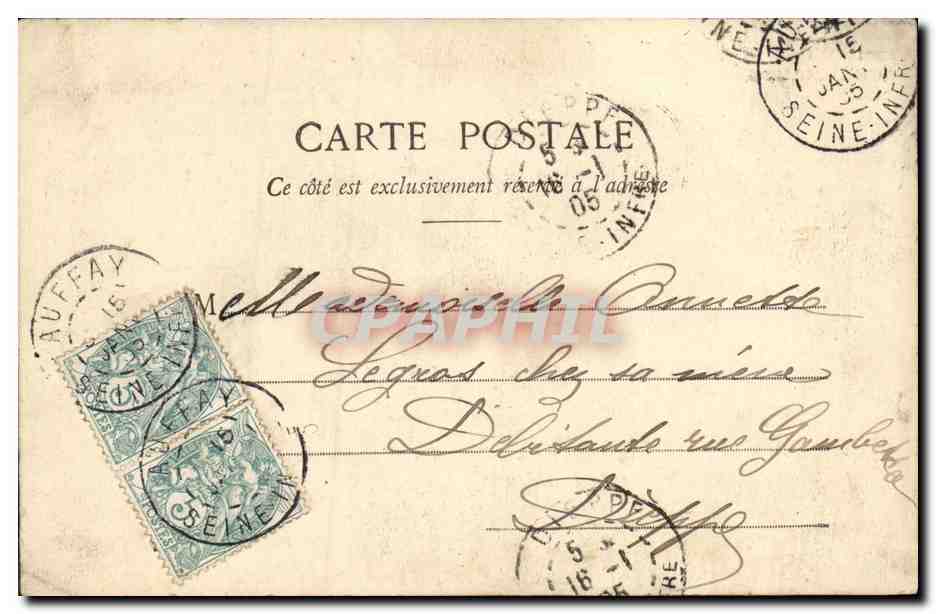 CARTE POSTALE
Ce côté est exclusivement réservé à l'adresse
M elle Mademoiselle Annette
Legros chez sa mère
Débitante rue Gambetta
Dieppe
CPAPHIL
AUFFAY
15
SEINE INF
AUFFAY
15
SEINE-IN
DIEPPE
5
16 -1
05
INFRE
15
JANV
05
SEINE-INFRE
DIEPPE
5
16 -1
05
POSTES
POSTES